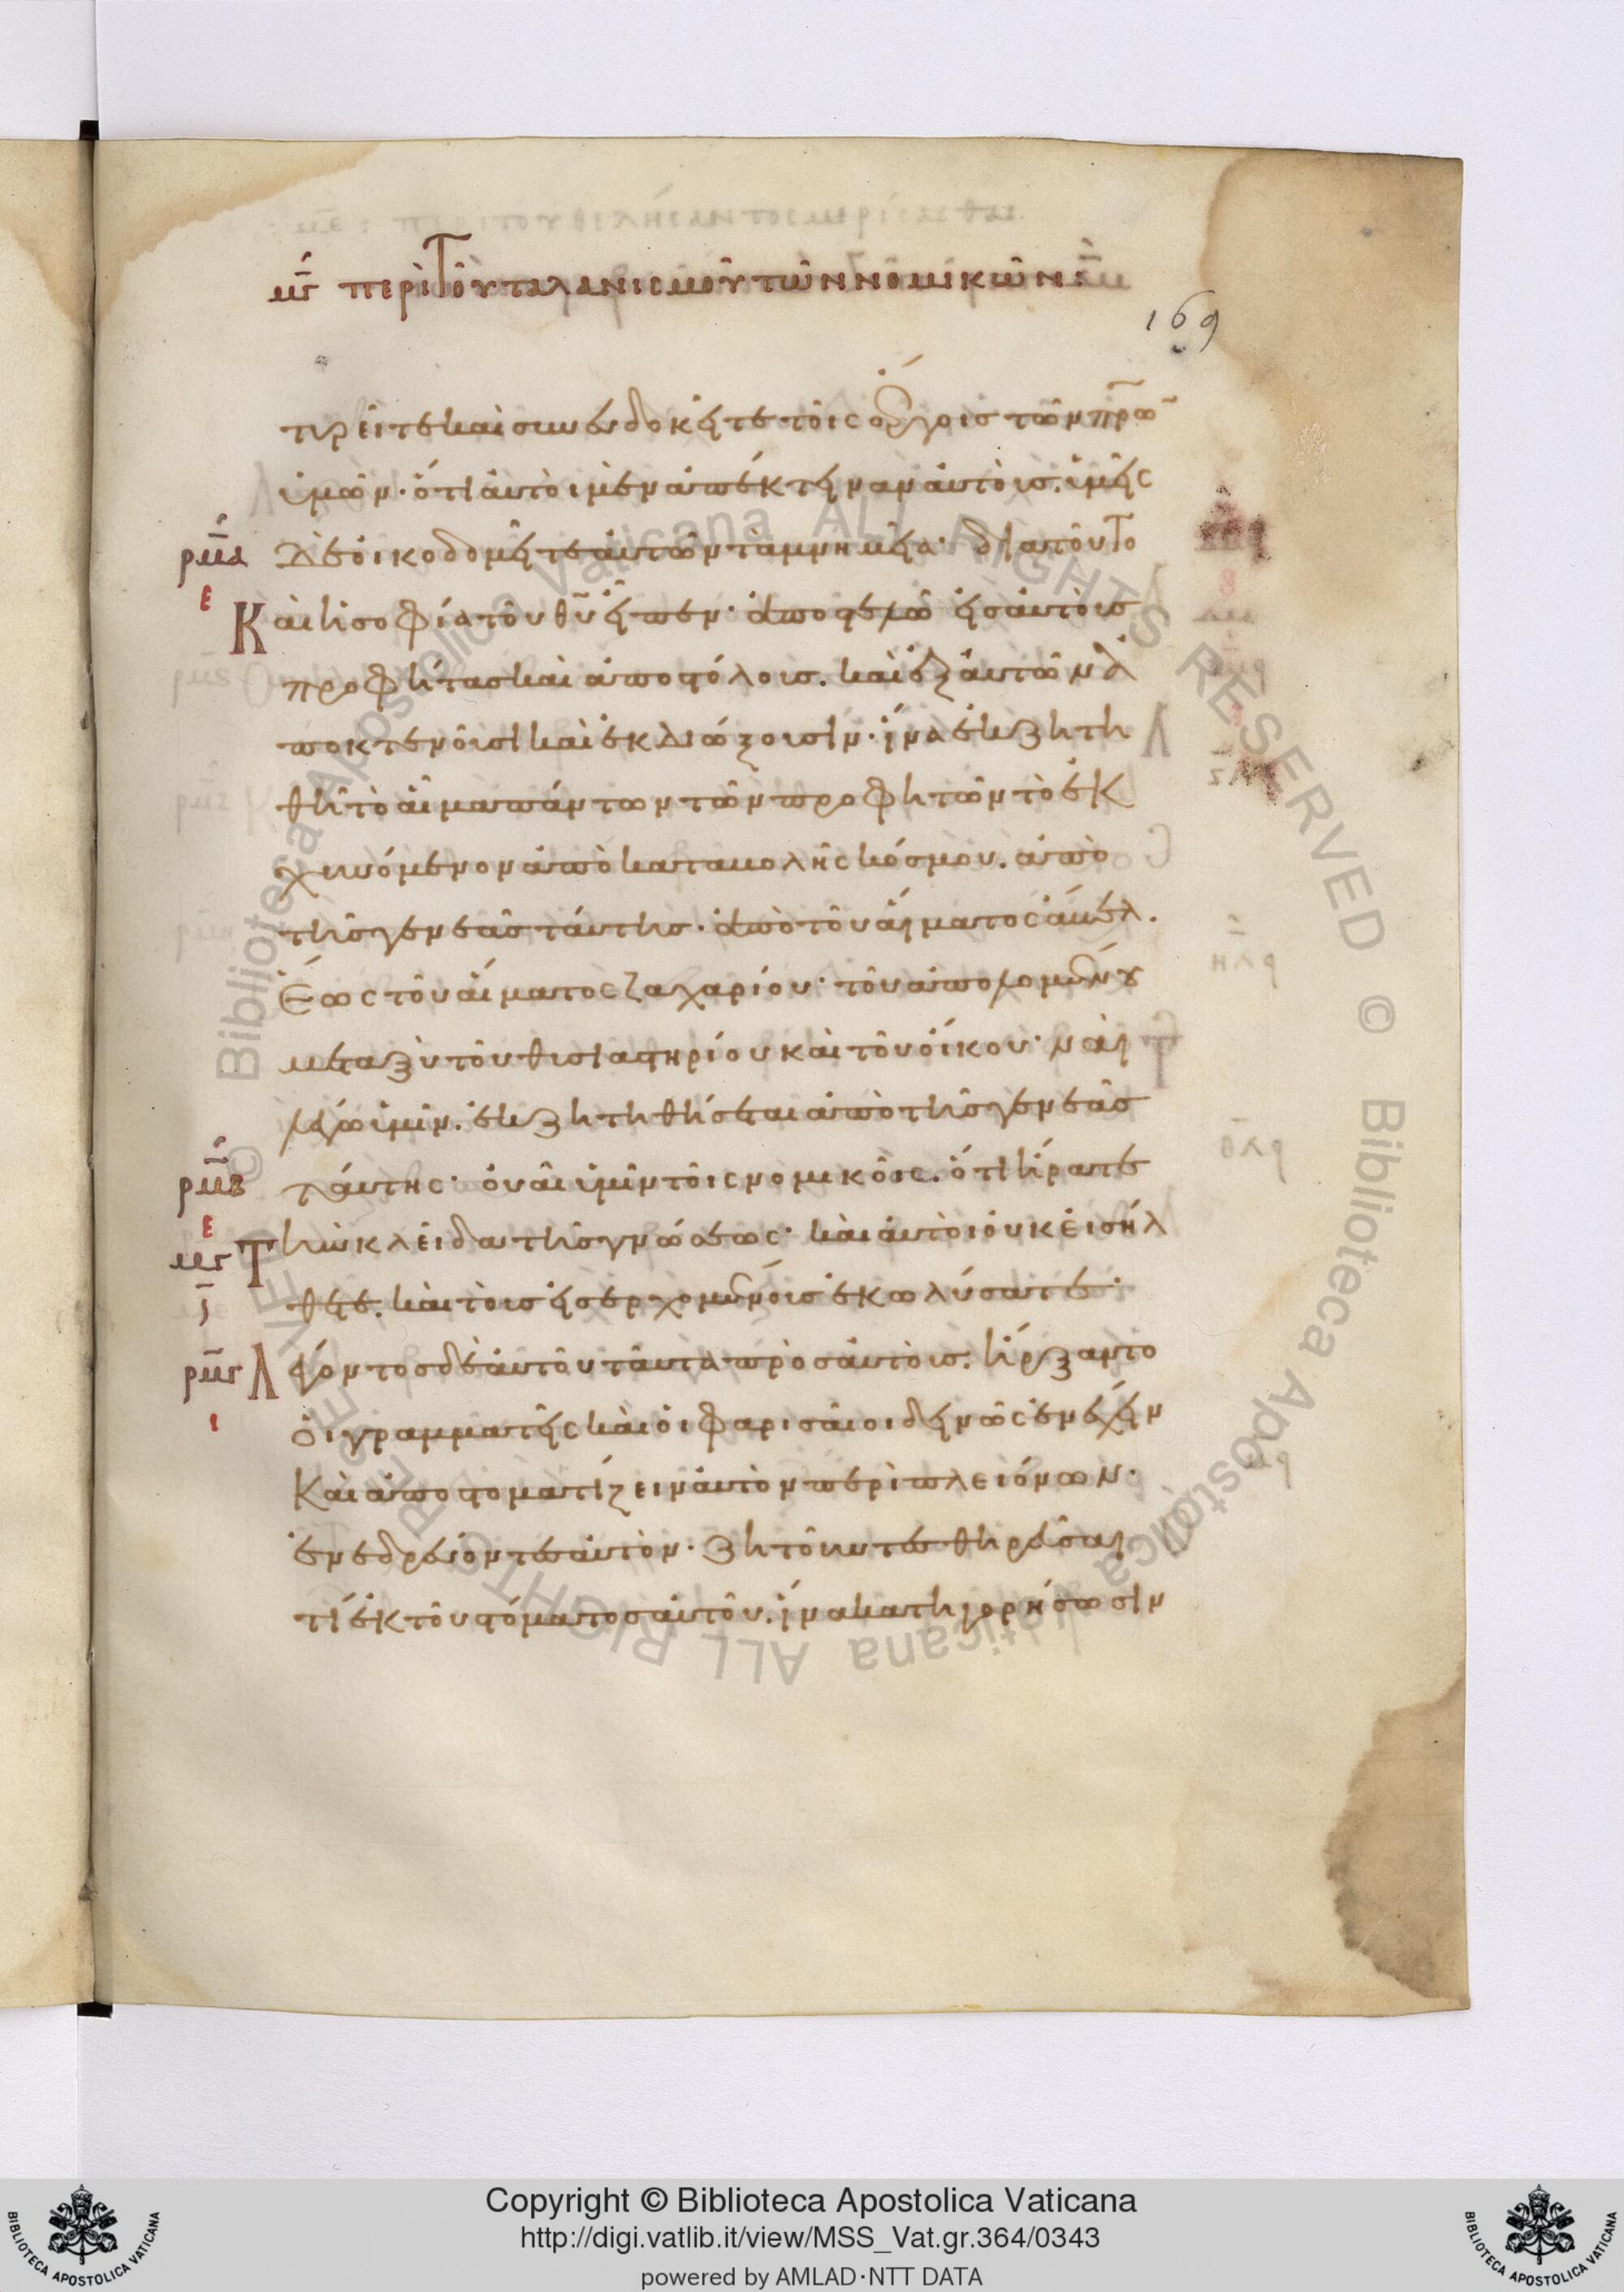 μγ περὶ τοῦ ταλανισμοῦ τῶν νομικῶν
169
τυρεῖτε καὶ συνευδοκεῖτε τοῖς ἔργοις τῶν πρω̅
ὑμῶν· ὅτι αὐτοὶ μὲν ἀπέκτειναν αὐτούς. ὑμεῖς
ρμα δὲ οἰκοδομεῖτε αὐτῶν τὰ μνημεῖα· διατοῦτο
ε Καὶ ἡ σοφία τοῦ θυ̅ εἶπεν· ἀποστελῶ εἰς αὐτοὺς
προφήτας καὶ ἀποστόλους. καὶ ἐξ αὐτῶν ἀ
ποκτενοῦσι καὶ ἐκδιώξουσιν· ἵνα ἐκζητη
θῆ τὸ αἷμα πάντων τῶν προφητῶν τὸ ἐκ
χυνόμενον ἀπὸ καταβολῆς κόσμου. ἀπὸ
τῆς γενεᾶς ταύτης· ἀπὸ τοῦ αἵματος ἄβελ.
Ἕως τοῦ αἵματος ζαχαρίου· τοῦ ἀπολομένου
μεταξὺ τοῦ θυσιαστηρίου καὶ τοῦ οἴκου· ναὶ
λέγω ὑμῖν. ἐκζητηθήσεται ἀπὸ τῆς γενεᾶς
ρμβ ταύτης· οὐαὶ ὑμῖν τοῖς νομικοῖς. ὅτι ἤρατε
ε μγ Τὴν κλεῖδα τῆς γνώσεως· καὶ αὐτοὶ οὐκ εἰσήλ
ι θετε. καὶ τοὺς εἰσερχομένους ἐκωλύσατε·
ρμγ Λέγοντος δὲ αὐτοῦ ταῦτα πρὸς αὐτούς. ἤρξαντο
ι οἱ γραμματεῖς καὶ οἱ φαρισαῖοι δεινῶς ἐνέχειν
Καὶ ἀποστοματίζειν αὐτὸν περὶ πλειόνων·
ἐνεδρεύοντες αὐτόν. ζητοῦντες θηρεῦσαι
τί ἐκ τοῦ στόματος αὐτοῦ. ἵνα κατηγορήσωσιν
© Biblioteca Apostolica Vaticana ALL RIGHTS RESERVED
Copyright © Biblioteca Apostolica Vaticana
http://digi.vatlib.it/view/MSS_Vat.gr.364/0343
powered by AMLAD·NTT DATA
BIBLIOTECA APOSTOLICA VATICANA
BIBLIOTECA APOSTOLICA VATICANA